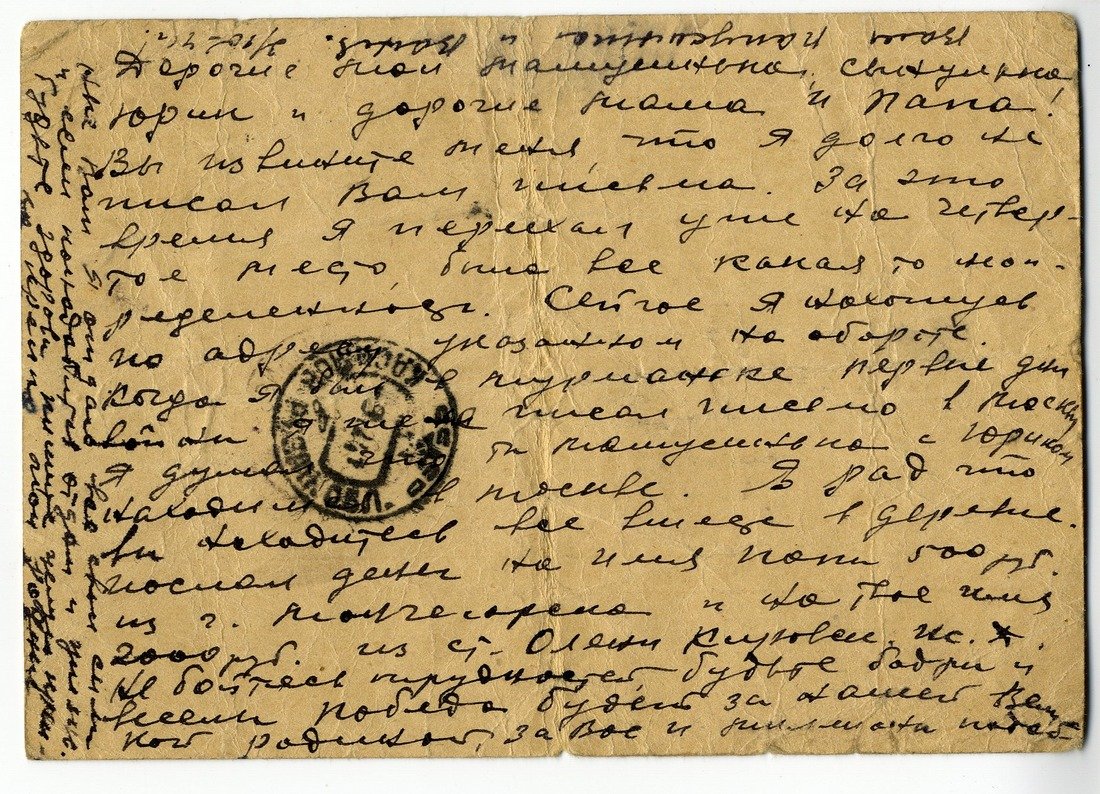 Дорогие мои мамушинька, сынулька
Юрик и дорогие мама и папа!
Вы извините меня, что я долго не
писал Вам письма. За это
время я переехал уже на четвер-
тое место была все какая то неоп-
ределенность. Сейчас я нахожусь
по адресу указаном на обороте.
Когда я был в Мурманске первые дни
войны я тебе писал письмо в Москву
Я думал что ты мамушинька с Юриком
находишься в Москве. Я рад что
вы находитесь все вместе в деревне.
послал деньги на имя папы 500 руб.
из г. Мончегорска и на твое имя
2000 руб. из ст. Оленья Кировск. ж.д.
Не бойтесь трудностей, будьте бодры и
веселы победа будет за нашей Вели-
кой родиной, за Вас и
и если понадобится отдам и жизнь.
Будьте здоровы пишите целую креп-
ко крепко мои родные
Ваш и